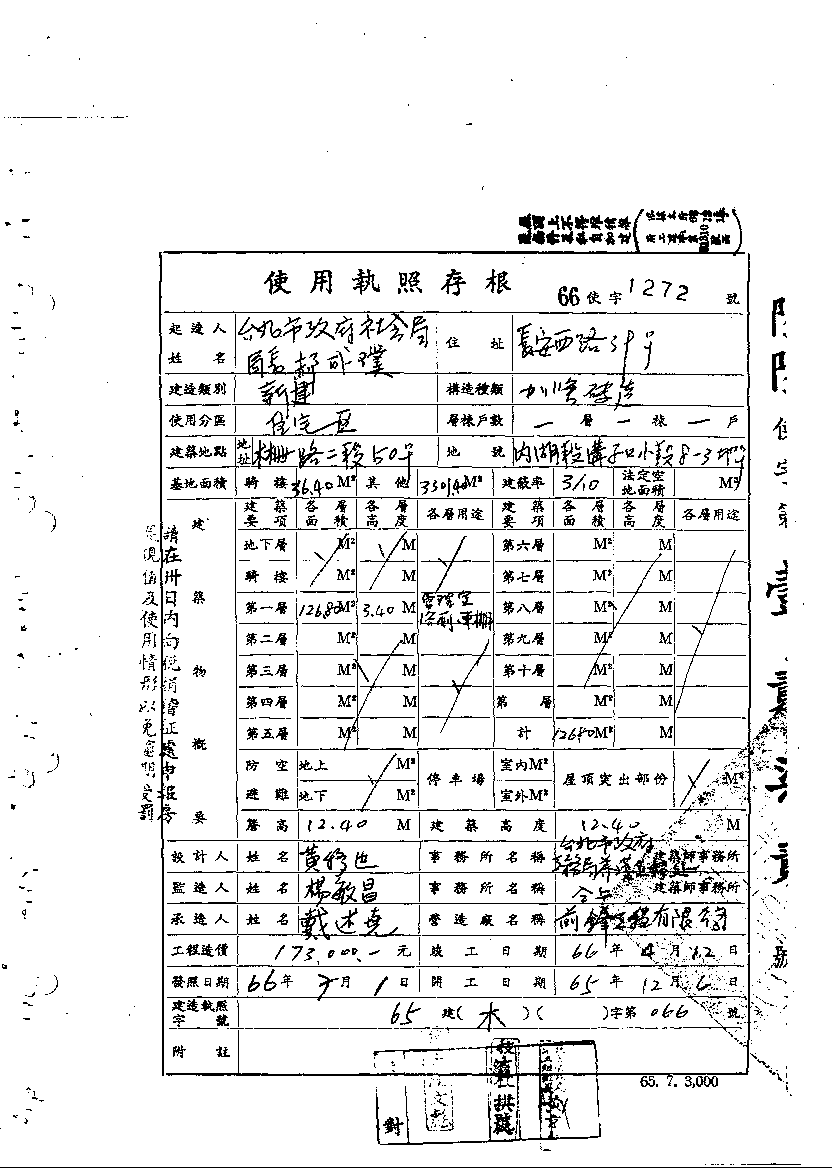 使用執照存根 66使字1272號
起造人姓名 台北市政府社會局 局長 郝成璞 住址 長安西路39号
建造類別 新建 構造種類 加強磚造
使用分區 住宅區 層棟戶數 一層一棟一戶
建築地點 地址 木柵路二段50号 地號 內湖段溝子口小段8-3地号
基地面積 騎樓 36.40M² 其他 M² 建蔽率 3/10 法定空地面積 M²
建築物概要
建築要項 各層面積 各層高度 各層用途 建築要項 各層面積 各層高度 各層用途
地下層 M² M 第六層 M² M
騎樓 M² M 第七層 M² M
第一層 126.80M² 3.40M 管理室 第八層 M² M
第二層 M² M 第九層 M² M
第三層 M² M 第十層 M² M
第四層 M² M 第 層 M² M
第五層 M² M 計 126.80M² M
防空避難 地上 M² 地下 M² 停車場 室內M² 室外M² 屋頂突出部份 M²
簷高 12.40 M 建築高度 12.40 M
設計人 姓名 事務所名稱 台北市政府 建築師事務所
監造人 姓名 楊敏昌 事務所名稱 仝上 建築師事務所
承造人 姓名 戴述堯 營造廠名稱 前鋒工程有限公司
工程造價 173,000.- 元 竣工日期 66年4月12日
發照日期 66年7月1日 開工日期 65年12月6日
建造執照字號 65建(木)( )字第066號
附註
65. 7. 3,000
請在卅日內向稅捐稽征處申報房
屋現值及使用情形以免逾期受罰
對